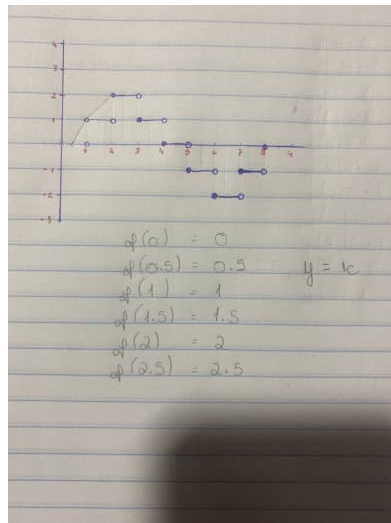 4
2
1
1 2 3 4 5 6 7 8 9
-1
-2
-3
f(0) = 0
f(0.5) = 0.5
y = x
f(1) = 1
f(1.5) = 1.5
f(2) = 2
f(2.5) = 2.5